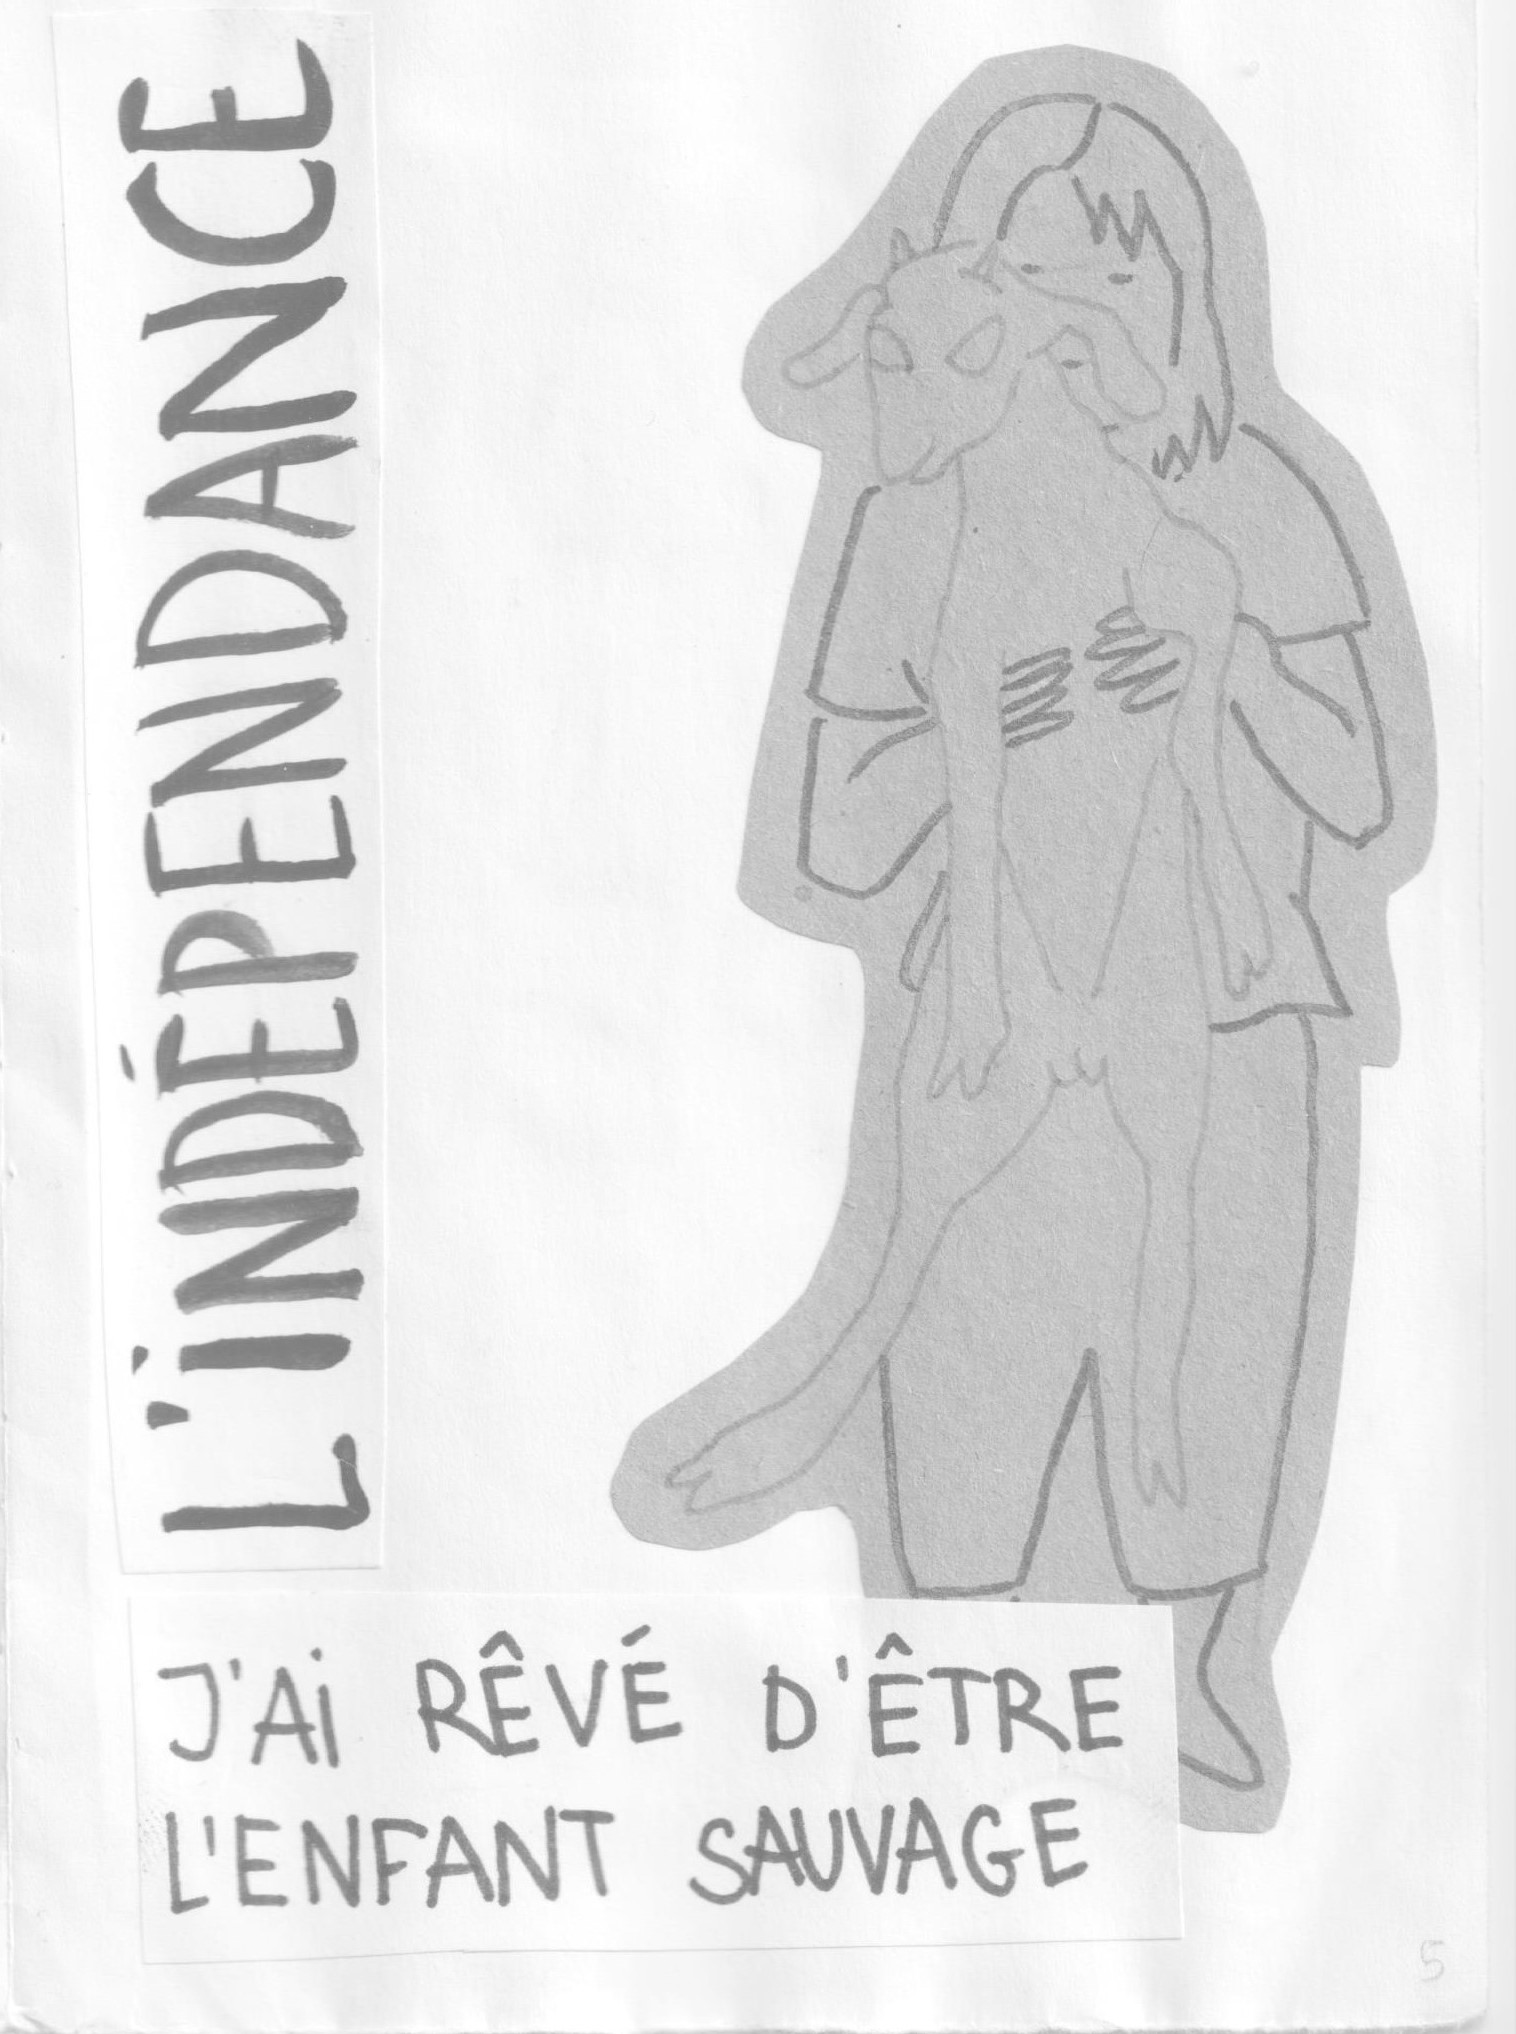 L'iNDÉPENDANCE
J'Ai RÊVÉ D'ÊTRE
L'ENFANT SAUVAGE
5